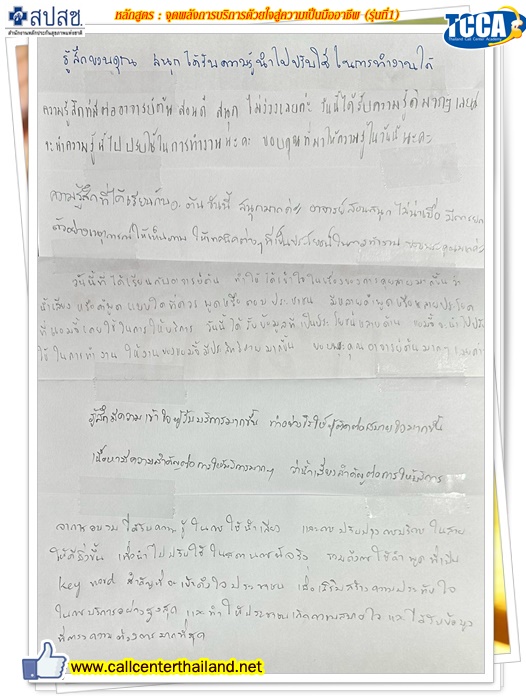 สปสช.
สำนักงานหลักประกันสุขภาพแห่งชาติ
หลักสูตร : จุดพลังการบริการด้วยใจสู่ความเป็นมืออาชีพ (รุ่นที่1)
TCCA
Thailand Call Center Academy
รู้สึกขอบคุณ สนุก ได้รับความรู้นำไปปรับใช้ในการทำงานได้
ความรู้สึกที่มีต่ออาจารย์ต้น สอนดี สนุก ไม่ง่วงเลยค่ะ วันนี้ได้รับความรู้ดีมากๆ เลยค่ะ
จะนำความรู้นี้ไปปรับใช้ในการทำงานนะคะ ขอบคุณที่มาให้ความรู้ในวันนี้นะคะ
ความรู้สึกที่ได้เรียนกับอ.ต้น เช้านี้ สนุกมากค่ะ อาจารย์สอนสนุก ไม่น่าเบื่อ มีการยก
ตัวอย่างเหตุการณ์ให้เห็นภาพ ให้เทคนิคต่างๆ ที่เป็นประโยชน์ในการทำงาน ขอบพระคุณมากค่ะ
วันนี้ที่ได้เรียนกับอาจารย์ต้น ทำให้ได้เข้าใจในเรื่องของการคุยสายมากขึ้น ว่า
น้ำเสียง หรือคำพูด แบบใดที่ควรพูดหรือตอบประชาชน มีหลายคำพูดหรือหลายประโยค
ที่แอมมี่เคยใช้ในการให้บริการ วันนี้ได้รับข้อมูลที่เป็นประโยชน์หลายด้าน จะนำไปปรับ
ใช้ในการทำงาน ให้งานของแอมมี่มีประสิทธิภาพมากขึ้น ขอบพระคุณอาจารย์ต้นมากๆ เลยค่ะ
รู้สึกมีความเข้าใจผู้รับบริการมากขึ้น ทำอย่างไรให้ผู้ติดต่อสบายใจมากขึ้น
เนื้อหามีความสำคัญต่อการให้บริการมากๆ ว่าน้ำเสียงสำคัญต่อการให้บริการ
จากการอบรม ได้รับความรู้ในการใช้น้ำเสียง และการปรับปรุงการบริการในสาย
ให้ดียิ่งขึ้น เพื่อนำไปปรับใช้ในสถานการณ์จริง รวมถึงการใช้คำพูดที่เป็น
key word สำคัญที่จะเข้าถึงใจประชาชน เพื่อเสริมสร้างความประทับใจ
ในการบริการอย่างสูงสุด และทำให้ประชาชนเกิดความสบายใจ และได้รับข้อมูล
ที่ตรงความต้องการมากที่สุด
www.callcenterthailand.net